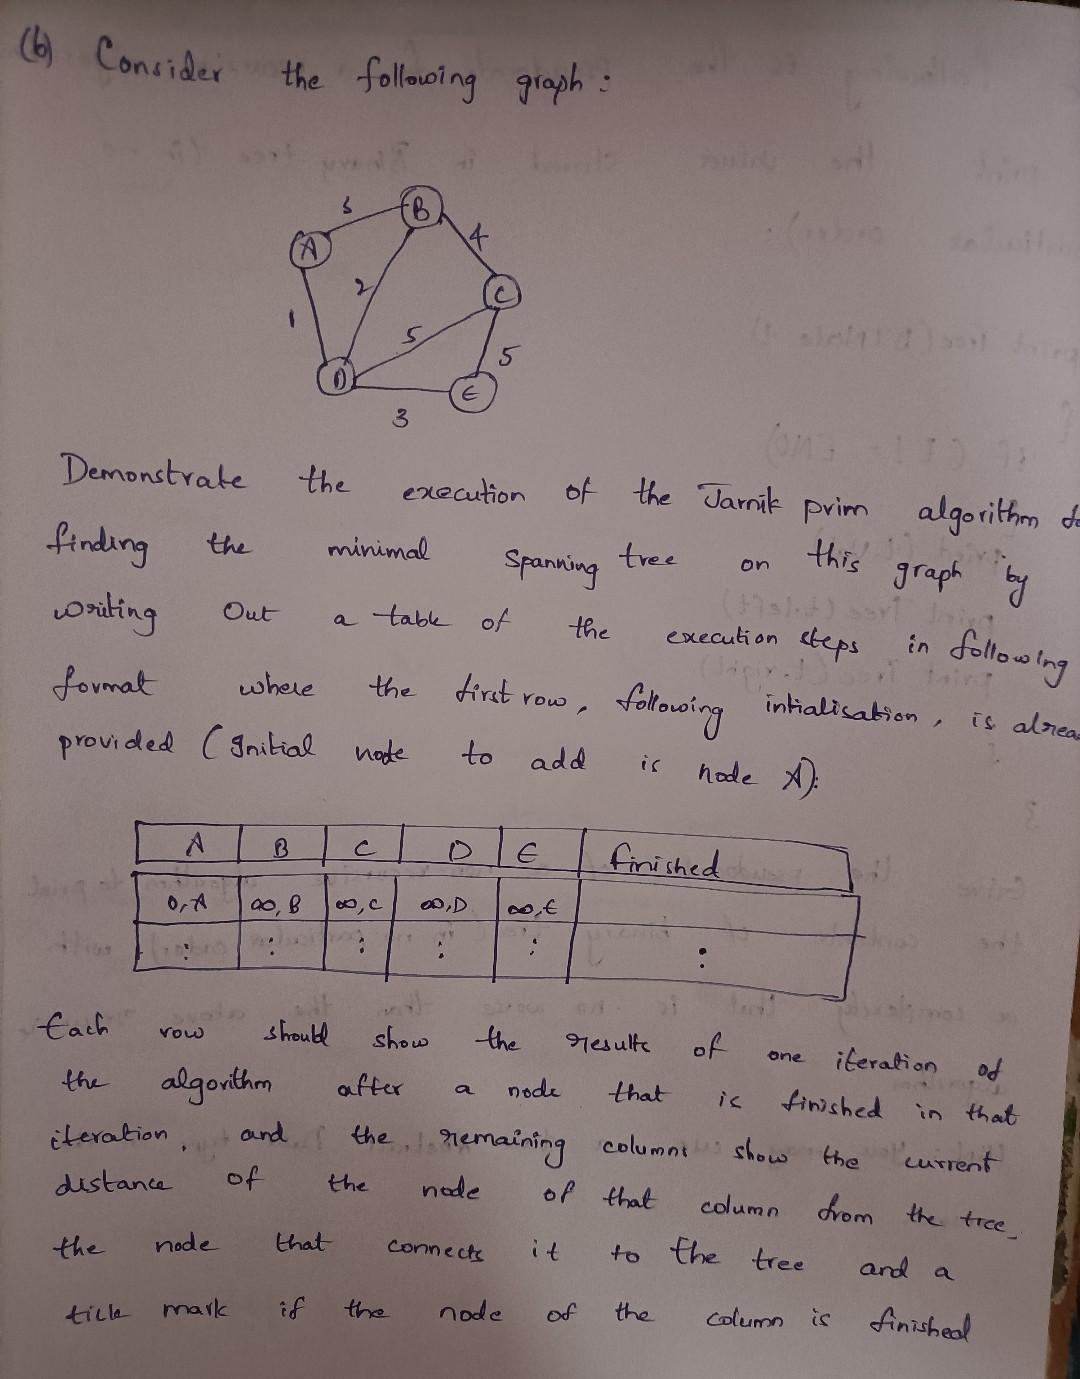 (b) Consider the following graph :
5
B
A
4
2
C
1
5
5
D
E
3
Demonstrate the execution of the Jarnik prim algorithm
finding the minimal spanning tree on this graph by
writing out a table of the execution steps in following
format where the first row, following intialisation, is alrea
provided (Initial node to add is node A):
A B C D E finished
0,A ∞,B ∞,C ∞,D ∞,E
⋮ ⋮ ⋮ ⋮ ⋮ ⋮
Each row should show the results of one iteration of
the algorithm after a node that is finished in that
iteration, and the remaining columns show the current
distance of the node of that column from the tree,
the node that connects it to the tree and a
tick mark if the node of the column is finished